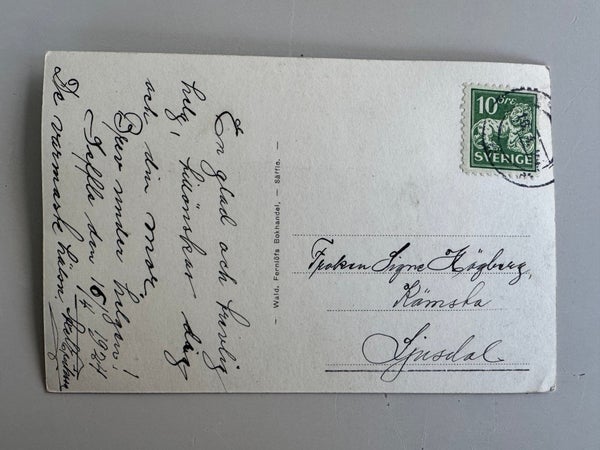 En glad och trevlig
helg, tillönskar dig
och din mor.
Brev under helgen!
Säffle den 16/4 1924
De varmaste hälsn.
— Wald. Fernlöfs Bokhandel, — Säffle. —
10 öre
SVERIGE
Fröken Signe Högberg,
Kämsta
Ljusdal